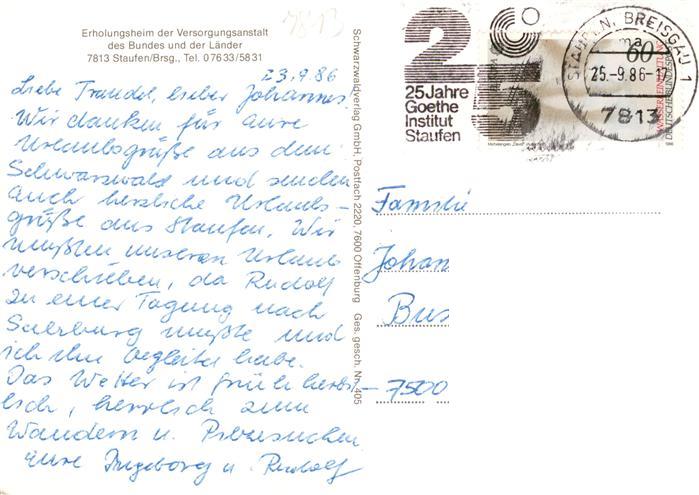 7813
Erholungsheim der Versorgungsanstalt
des Bundes und der Länder
7813 Staufen/Brsg., Tel. 07633/5831
23.9.86
Liebe Traudel, lieber Johannes.
Wir danken für eure
Urlaubsgrüße aus dem
Schwarzwald und senden
auch herzliche Urlaubs-
grüße aus Staufen. Wir
mußten unseren Urlaub
verschieben, da Rudolf
zu einer Tagung nach
Salzburg mußte und
ich ihn begleitet habe.
Das Wetter ist frühherbst-
lich, herrlich zum
Wandern u. Pilzesuchen
eure Ingeborg u. Rudolf
Schwarzwaldverlag GmbH, Postfach 2220, 7600 Offenburg Ges. gesch. Nr. 405
25
25 Jahre
Goethe
Institut
Staufen
STAUFEN, BREISGAU 1
ma
25.-9.86-17
7813
60
Familie
Johan
Bus
7500